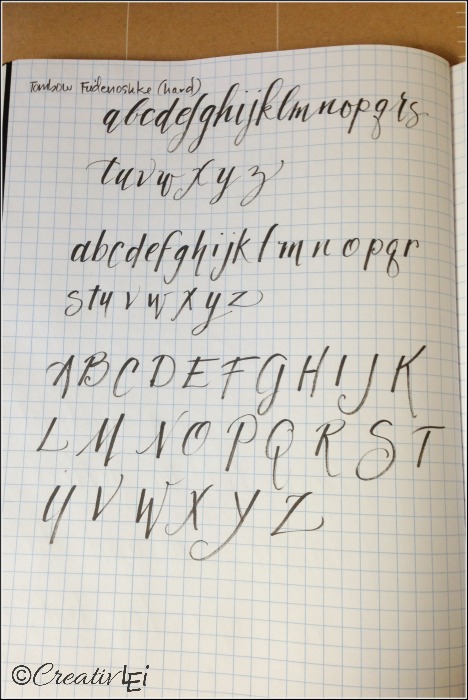 Tombow Fudenosuke (hard)
abcdefghijklmnopqrs
tuvwxyz
abcdefghijklmnopqr
stuvwxyz
ABCDEFGHIJK
LMNOPQRST
UVWXYZ
©CreativLEi